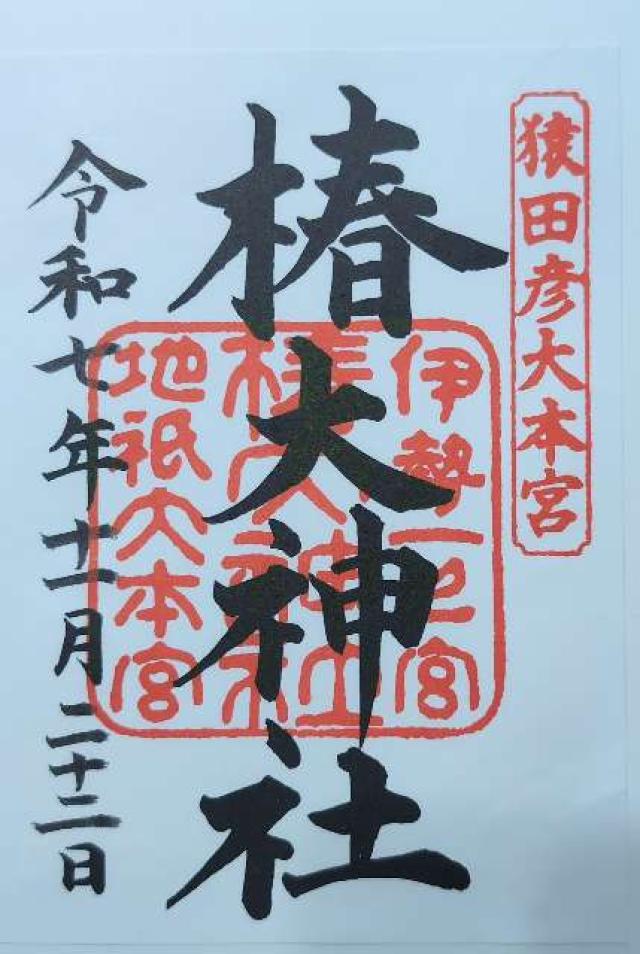 猿田彦大本宮
椿大神社
伊勢一之宮
椿大神社
地祇大本宮
令和七年十一月二十二日